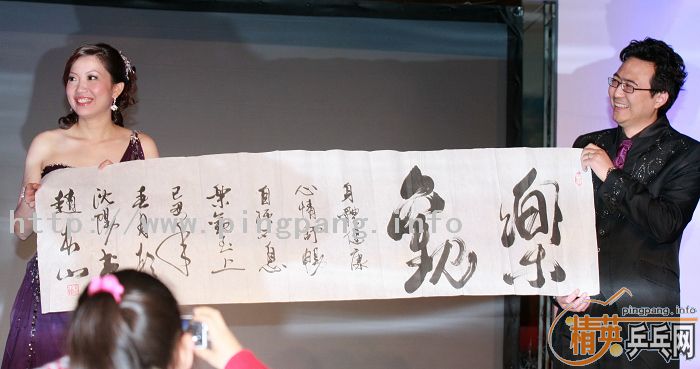 樂觀
身體健康
心情舒暢
自強不息
至上
己丑年
沈陽
趙本山
http://www.pingpang.info
pingpang.info
精英乒乓网